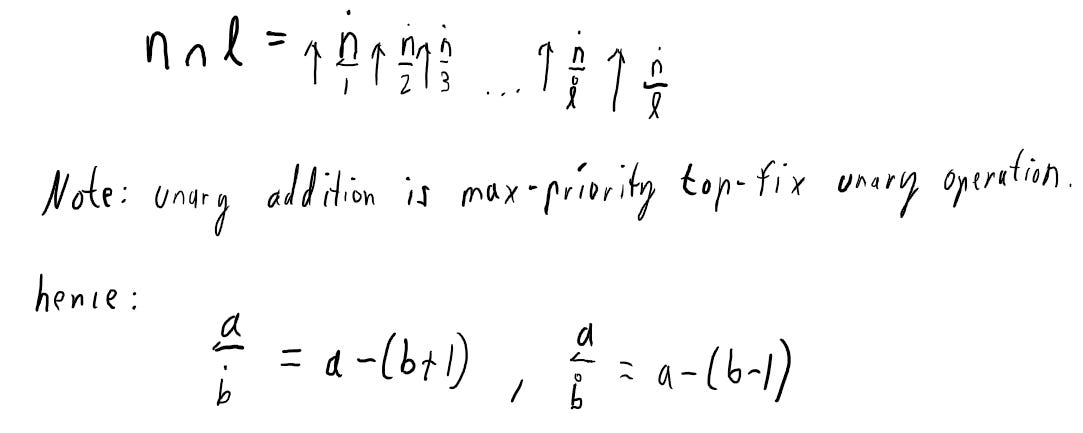 n ∩ l = ↑ ṅ/1 ↑ ṅ/2 ↑ ṅ/3 ... ↑ ṅ/l̊ ↑ ṅ/l
Note: unary addition is max-priority top-fix unary operation.
henie:
a/ḃ = a-(b+1) , a/b̊ = a-(b-1)